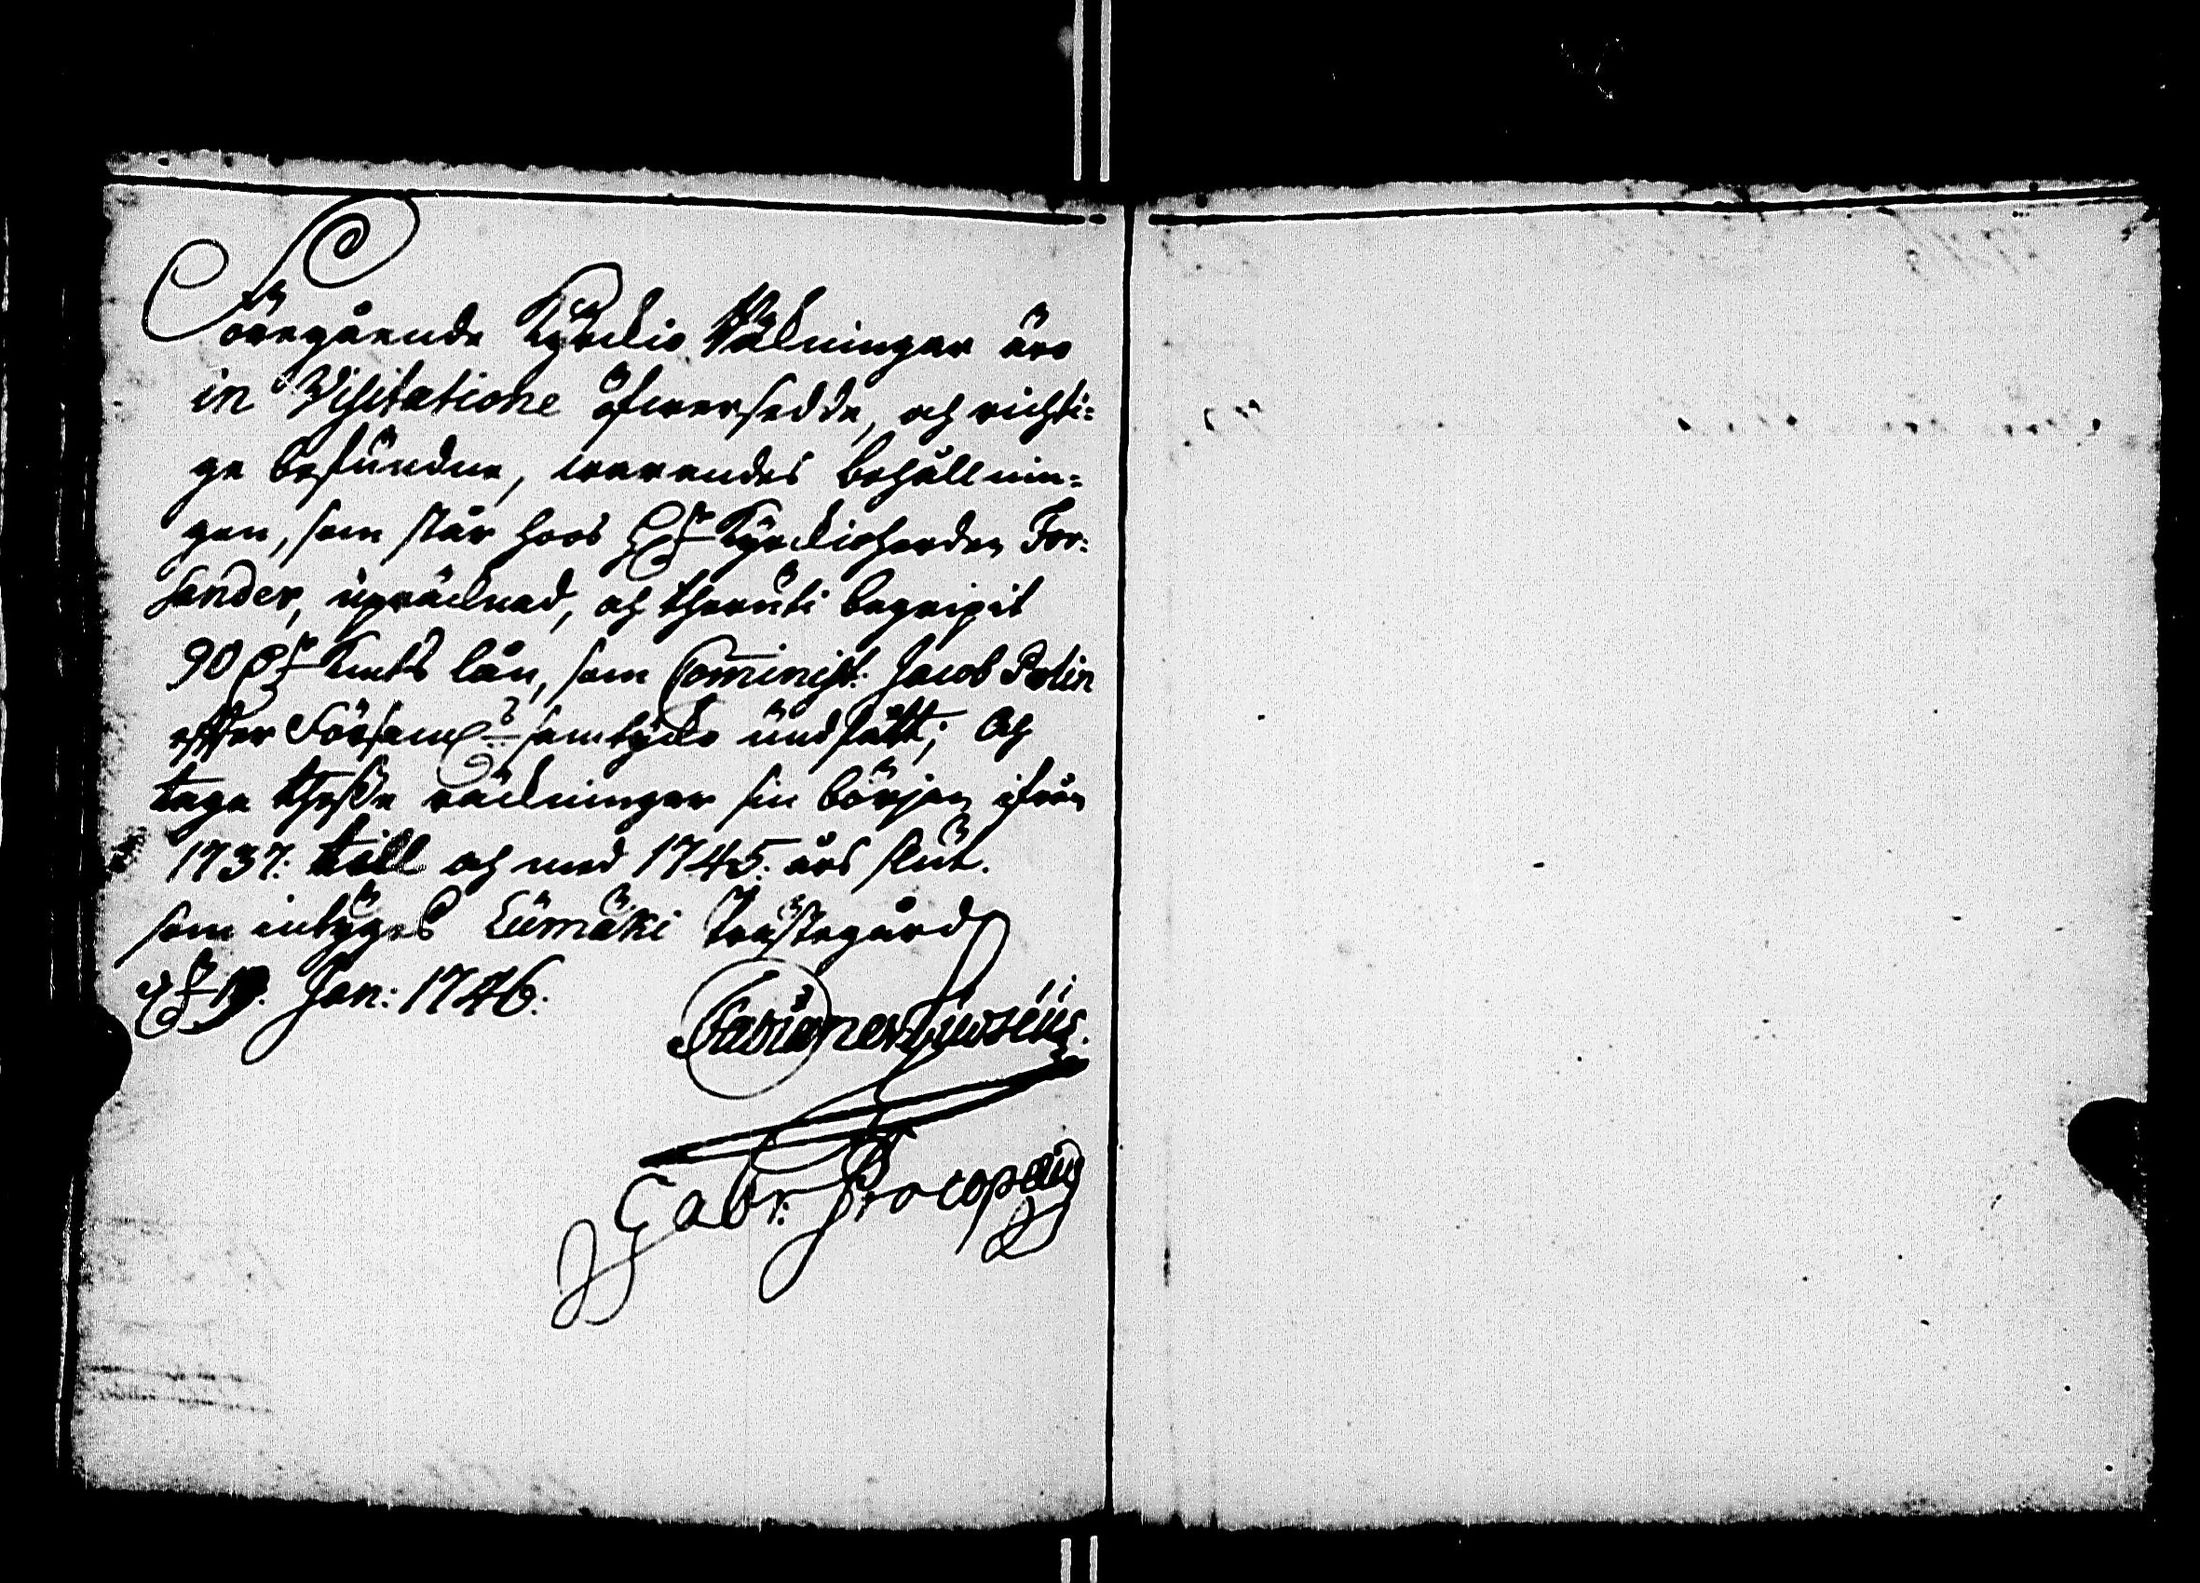 Föregående Kyrckio Räkningar äro
in Visitatione öfwersedde, och richti=
ge befundne, warandes behållnin=
gen, som står hoos H:r Kyrckioherden For=
sander, upräcknad, och theruti begripit
90 D:r Kmts lån, som Cominist: Jacob Polin
effter Församl:s samtycke undfått; Och
taga thesse räckningar sin början ifrån
1737. till och med 1745. års slut.
som intyges Lümäki Prästegård
d. 19. Jan: 1746.
Gabr: Procopæus